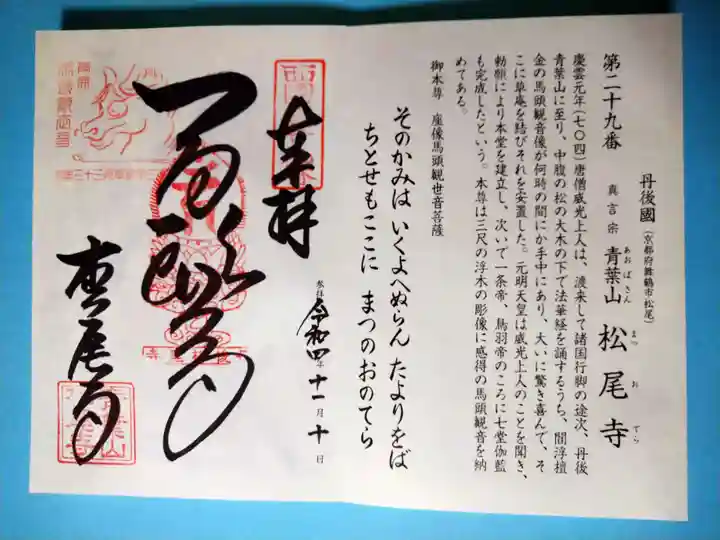 第二十九番
丹後國(京都府舞鶴市松尾)
真言宗 青葉山 松尾寺
あおばさん まつおてら
慶雲元年(七〇四)唐僧威光上人は、渡来して諸国行脚の途次、丹後
青葉山に至り、中腹の松の大木の下で法華経を誦するうち、閻浮檀
金の馬頭観音像が何時の間にか手中にあり、大いに驚き喜んで、そ
こに草庵を結びそれを安置した。元明天皇は威光上人のことを聞き、
勅願により本堂を建立し、次いで一条帝、鳥羽帝のころに七堂伽藍
も完成したという。本尊は三尺の浮木の彫像に感得の馬頭観音を納
めてある。
御本尊 座像馬頭観世音菩薩
そのかみは いくよへぬらん たよりをば
ちとせもここに まつのおのてら
奉拝
参拝 令和四年十一月十日
松尾寺